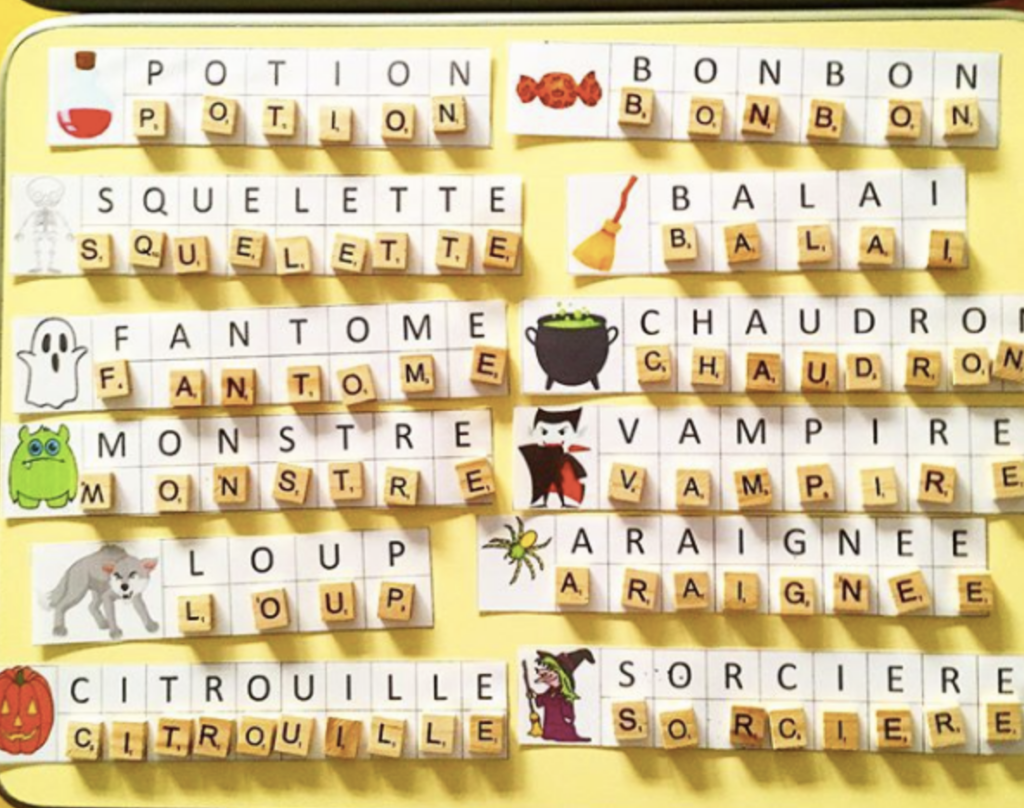 POTION
POTION
BONBON
BONBON
SQUELETTE
SQUELETTE
BALAI
BALAI
FANTOME
FANTOME
CHAUDRON
CHAUDRON
MONSTRE
MONSTRE
VAMPIRE
VAMPIRE
LOUP
LOUP
ARAIGNEE
ARAIGNEE
CITROUILLE
CITROUILLE
SORCIERE
SORCIERE